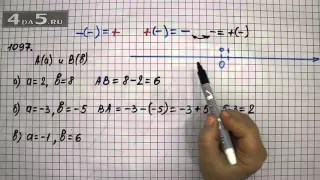 4da5.ru
-(-) = +   +(-) = -   - = +(-)
1097.
A(a) и B(b)
0 1
а) a=2, b=8   AB = 8-2 = 6
б) a=-3, b=-5   BA = -3-(-5) = -3+5 = 5-3 = 2
в) a=-1, b=6